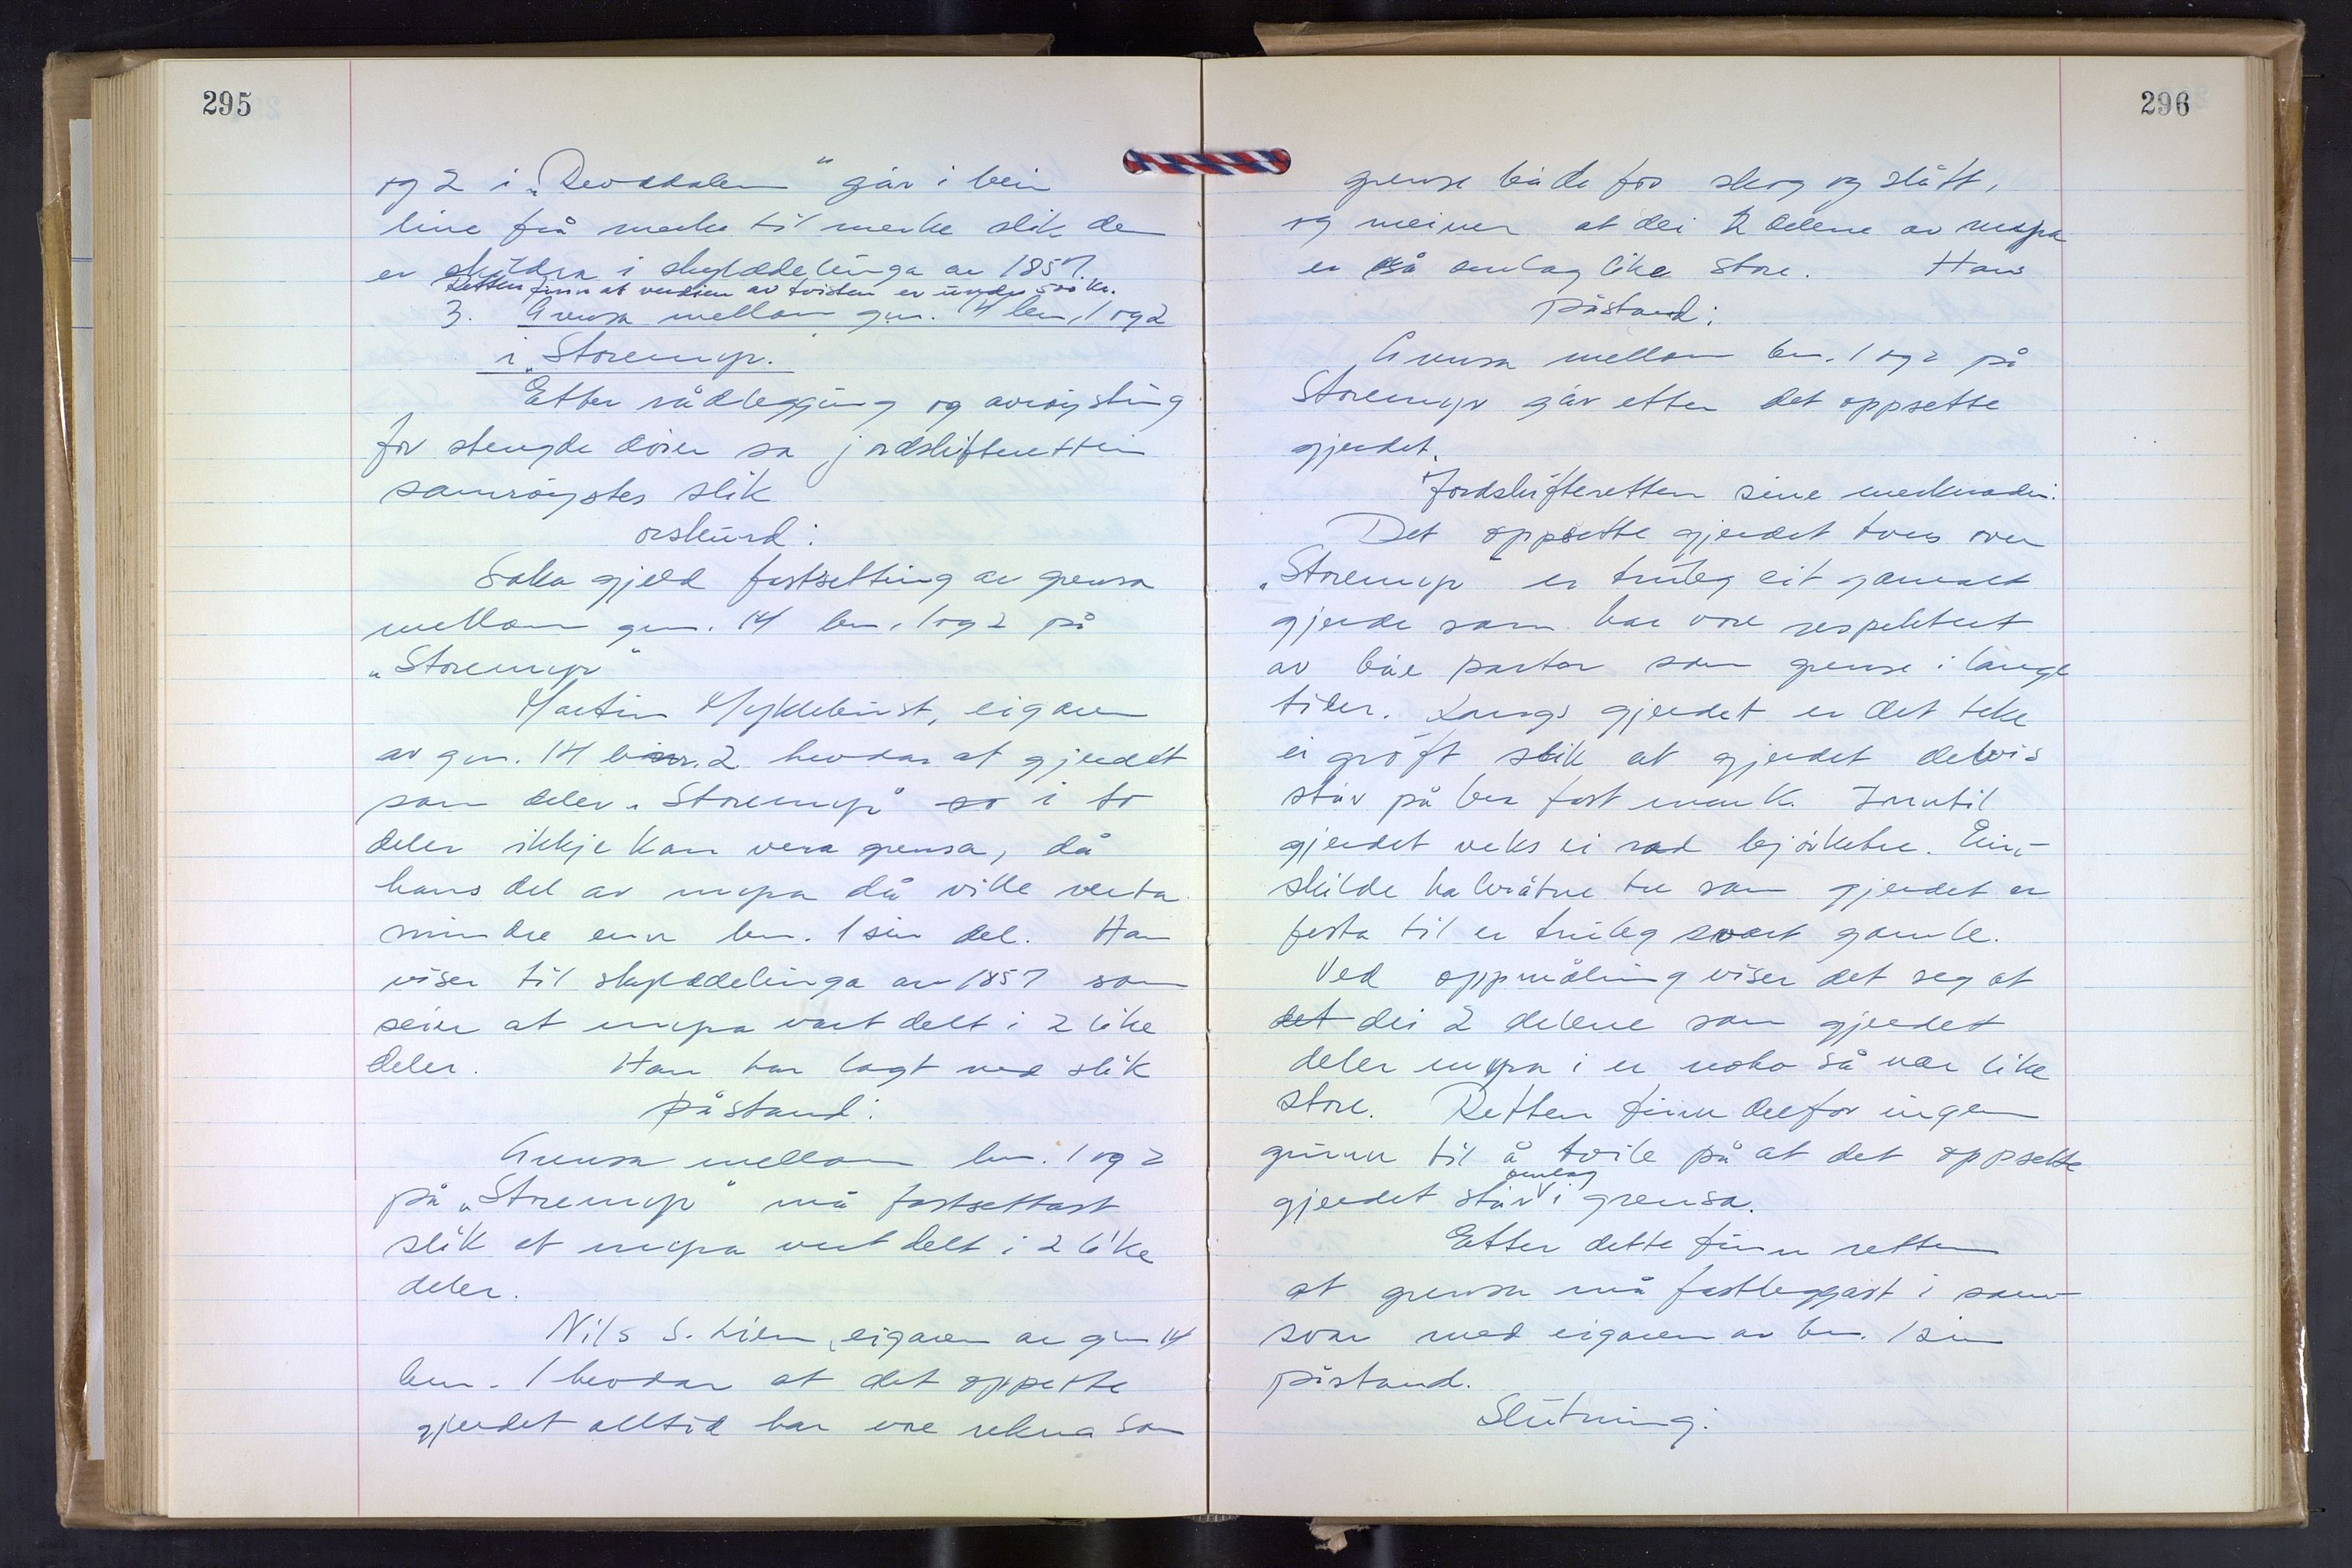 295
og 2 i „Revadalen" går i bein
line frå merke til merke slik de
er skildra i skylddelinga av 1857.
Retten finn at verdien av tvisten er under 500 kr.
3. Grensa mellom gnr. 14 bnr. 1 og 2
i „Storemyr.
Etter rådlegging og avrøysting
for stengde dører sa jordskifteretten
samrøystes slik
orskurd:
Saka gjeld fastsetting av grensa
mellom gnr. 14 bnr. 1 og 2 på
„Storemyr"
Martin Myklebust, eigaren
av gnr. 14 bnr. 2 hevdar at gjerdet
som deler „Storemyr" so i to
deler ikkje kan vera grensa, då
hans del av myra då ville verta
mindre enn bnr. 1 sin del. Han
viser til skylddelinga av 1857 som
seier at myra vart delt i 2 like
deler. Han har lagt ned slik
påstand:
Grensa mellom bnr. 1 og 2
på „Storemyr" må fastsettast
slik at myra vert delt i 2 like
deler.
Nils S. Lien, eigaren av gnr 14
bnr. 1 hevdar at det oppsette
gjerdet alltid har vore rekna som
296
grense både for skog og slått,
og meiner at dei 2 delene av myra
er så omlag like store. Hans
påstand:
Grensa mellom bnr. 1 og 2 på
Storemyr går etter det oppsette
gjerdet.
Jordskifteretten sine merknader:
Det oppsette gjerdet tvers over
„Storemyr" er truleg eit gammalt
gjerde som har vore respektert
av båe partar som grense i lange
tider. Langs gjerdet er det teke
ei grøft slik at gjerdet delvis
står på bra fast mark. Inntil
gjerdet veks ei rad bjørketre. Ein-
skilde halvråtne tre som gjerdet er
festa til er truleg svært gamle.
Ved oppmåling viser det seg at
det dei 2 delene som gjerdet
deler myra i er noko så nær like
store. Retten finn derfor ingen
grunn til å tvile på at det oppsette
omlag
gjerdet står i grensa.
Etter dette finn retten
at grensa må fastleggast i sam-
svar med eigaren av bnr. 1 sin
påstand.
Slutning: